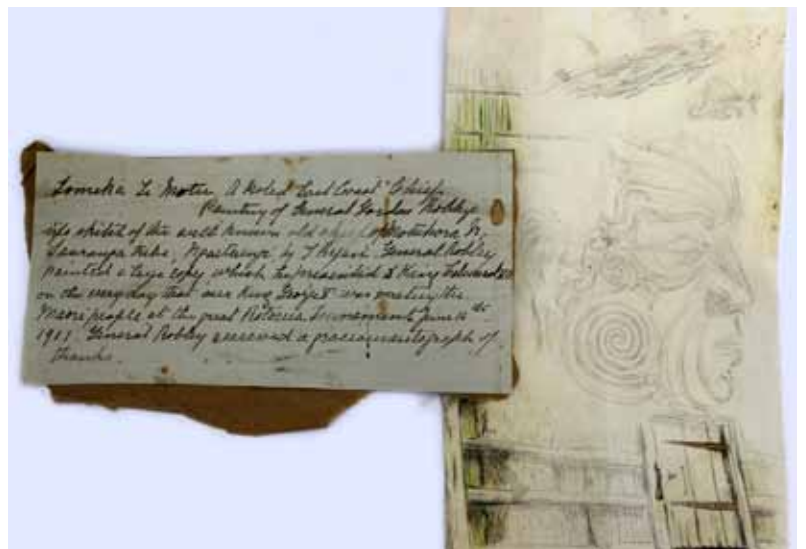 Tomika Te Mutu, A Noted East Coast Chief.
Painting of General Gordon Robley
life sketch of the well known old chief of Motuhora Is,
Tauranga Tribe, Ngaiterangi by T Ryan. General Robley
painted a large copy which he presented to King Edward VII
on the very day that our King George V was meeting the
Maori people at the great Rotorua tournament June 14th
1901. General Robley received a gracious autograph of
thanks.